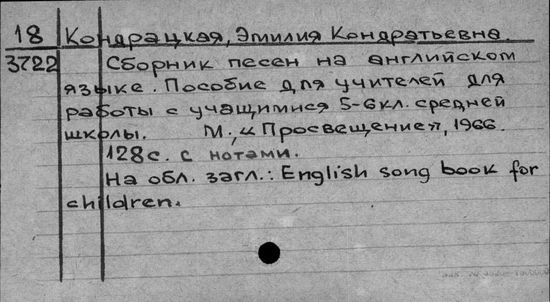 18 Кондрацкая, Эмилия Кондратьевна.
3722 Сборник песен на английском
языке. Пособие для учителей для
работы с учащимися 5-6 кл. средней
школы. М., „Просвещение", 1966.
128 с. с нотами.
На обл. загл.: English song book for
children.